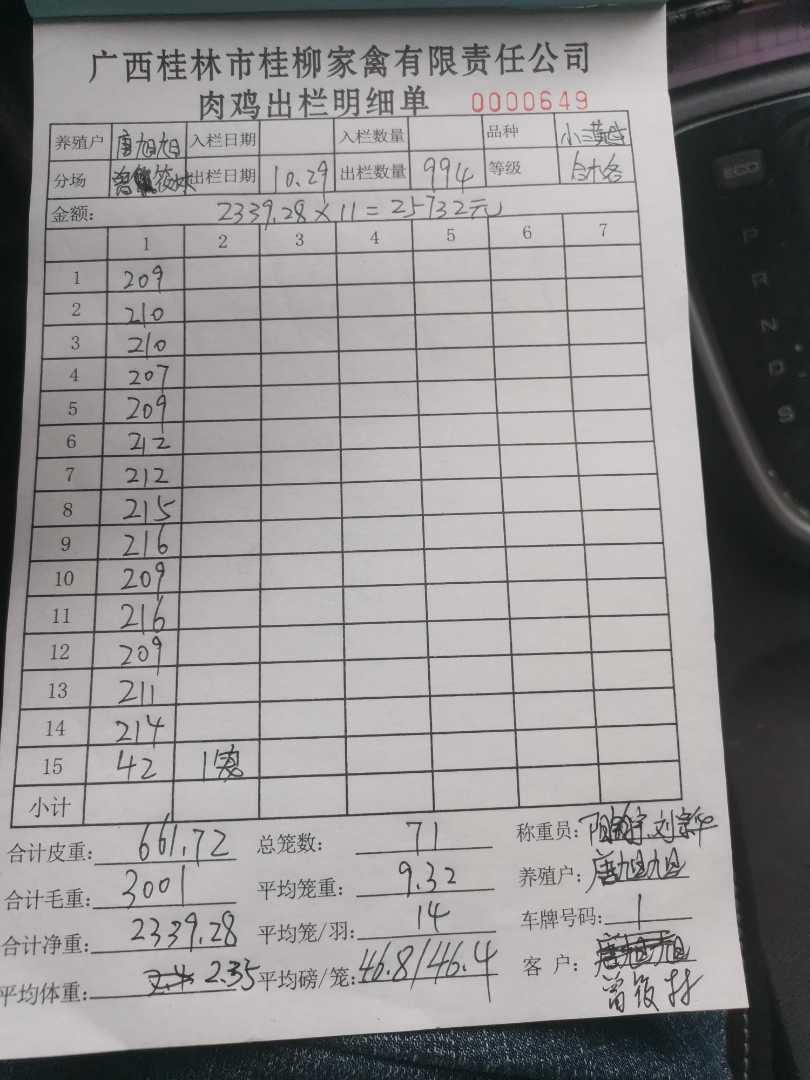 广西桂林市桂柳家禽有限责任公司
肉鸡出栏明细单 0000649
养殖户 唐旭旭 入栏日期 入栏数量 品种 小三黄
分场 筱林 出栏日期 10.29 出栏数量 994 等级 合格
金额: 2339.28×11=25732元
1 2 3 4 5 6 7
1 209
2 210
3 210
4 207
5 209
6 212
7 212
8 215
9 216
10 209
11 216
12 209
13 211
14 214
15 42 1笼
小计
合计皮重: 661.72 总笼数: 71 称重员: 刘宗华
合计毛重: 3001 平均笼重: 9.32 养殖户: 唐旭旭
合计净重: 2339.28 平均笼/羽: 14 车牌号码: 1
平均体重: 2.35 平均磅/笼: 46.8/46.4 客 户:
曾筱林
ECO
P
R
N
D
S